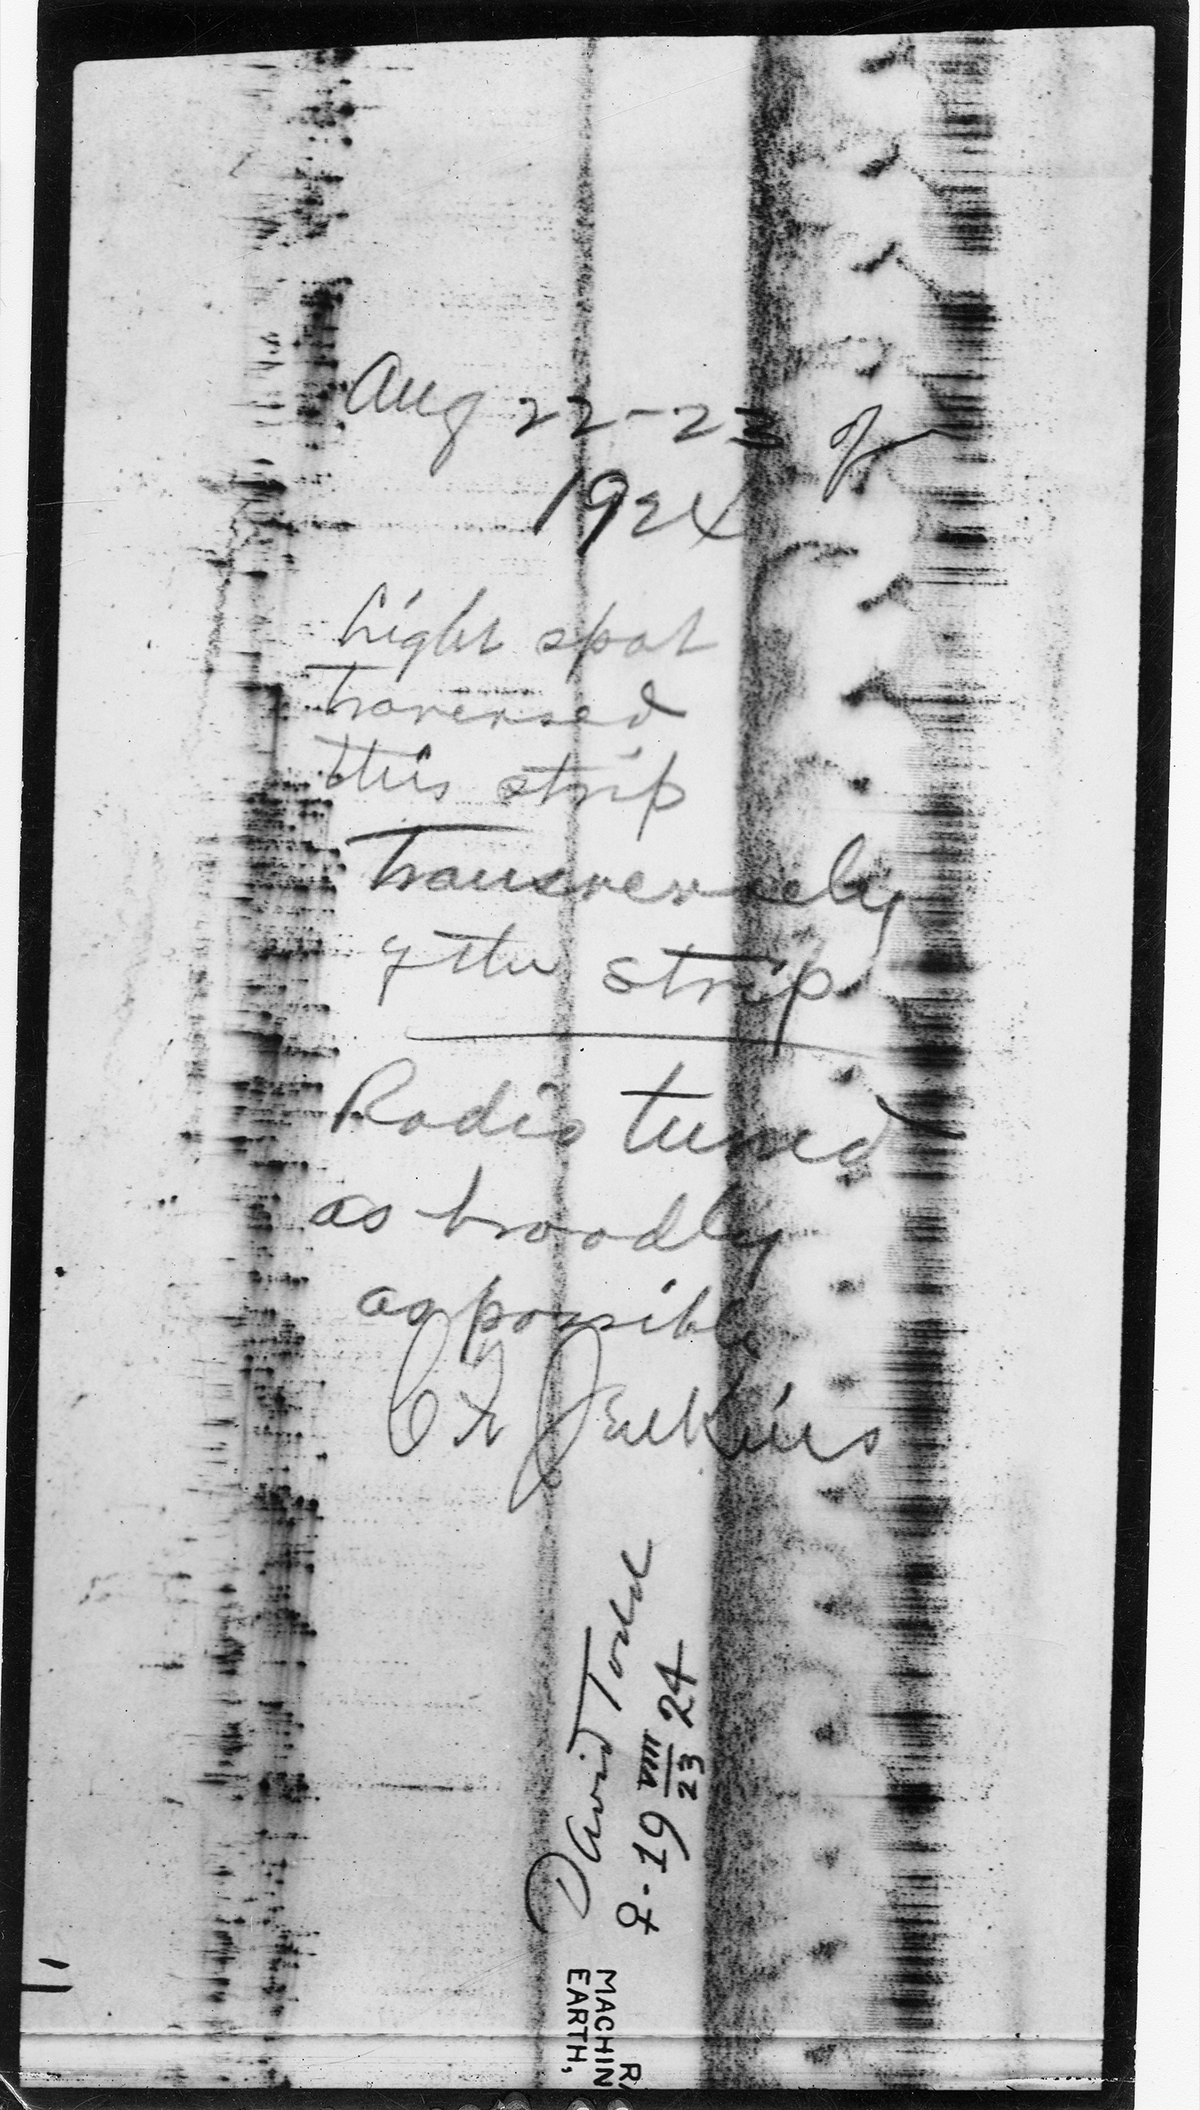 Aug 22-23 of
1924
Light spot
traversed
this strip
Transversely
of the strip
Radio tuned
as broadly
as possible
C F Jenkins
David Todd
♀-19 VIII/23 24
R
MACHIN
EARTH,